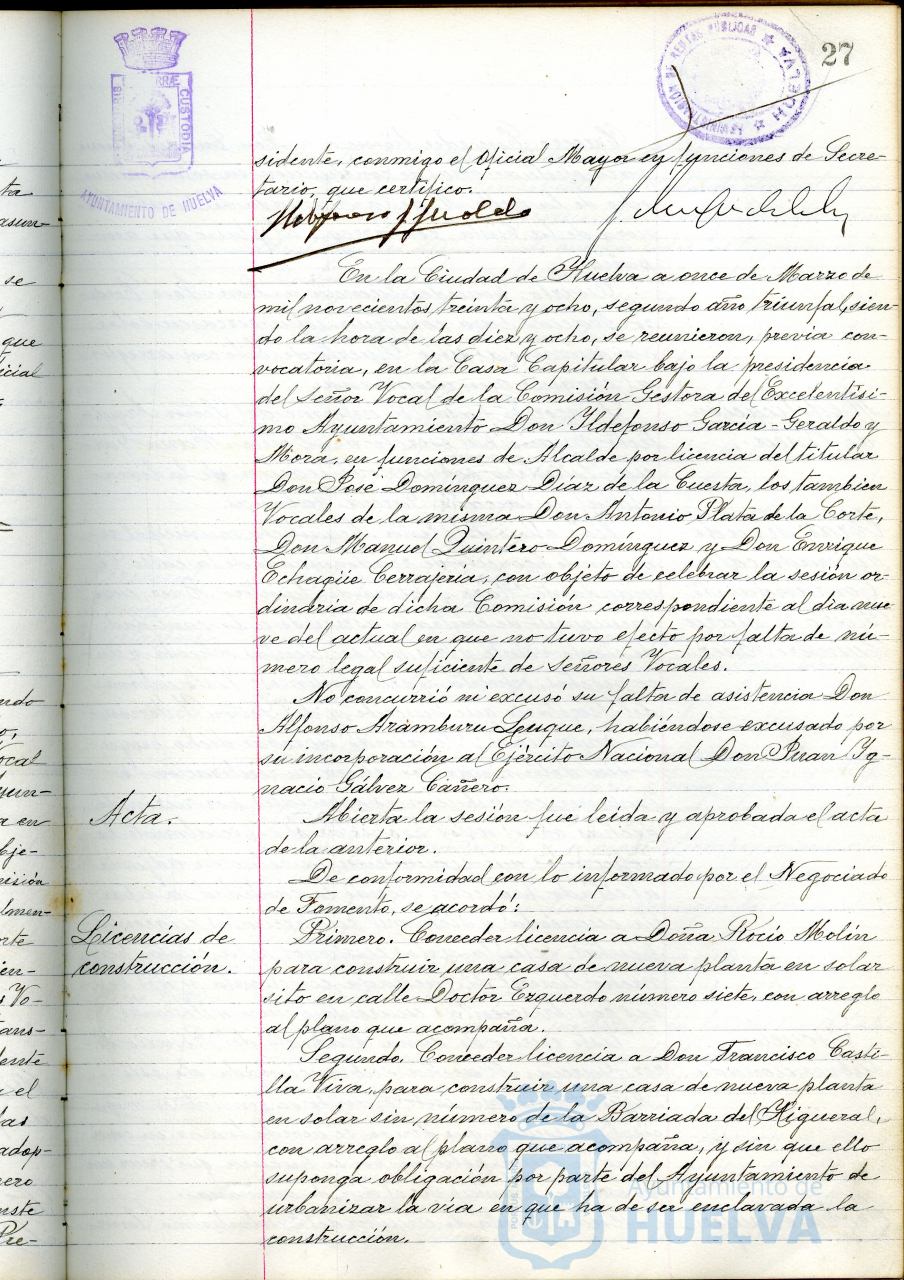 27
AYUNTAMIENTO DE HUELVA
sidente, conmigo el Oficial Mayor en funciones de Secre-
tario, que certifico.
En la Ciudad de Huelva a once de Marzo de
mil novecientos treinta y ocho, segundo año triunfal, sien-
do la hora de las diez y ocho, se reunieron, previa con-
vocatoria, en la Casa Capitular bajo la presidencia
del Señor Vocal de la Comisión Gestora del Excelentísi-
mo Ayuntamiento Don Ildefonso García-Geraldo y
Mora, en funciones de Alcalde por licencia del titular
Don José Domínguez Díaz de la Cuesta, los tambien
Vocales de la misma Don Antonio Plata de la Corte,
Don Manuel Quintero Domínguez y Don Enrique
Echagüe Cerrajería, con objeto de celebrar la sesión or-
dinaria de dicha Comisión correspondiente al dia nue-
ve del actual en que no tuvo efecto por falta de nú-
mero legal suficiente de Señores Vocales.
No concurrió ni excusó su falta de asistencia Don
Alfonso Aramburu Luque, habiéndose excusado por
su incorporación al Ejército Nacional Don Juan Ig-
nacio Gálvez Cañero.
Acta.
Abierta la sesión fué leída y aprobada el acta
de la anterior.
De conformidad con lo informado por el Negociado
de Fomento, se acordó:
Licencias de
construcción.
Primero. Conceder licencia a Doña Rocío Molín
para construir una casa de nueva planta en solar
sito en calle Doctor Ezquerdo número siete, con arreglo
al plano que acompaña.
Segundo. Conceder licencia a Don Francisco Casti-
lla Viva, para construir una casa de nueva planta
en solar sin número de la Barriada del Higueral,
con arreglo al plano que acompaña, y sin que ello
suponga obligación por parte del Ayuntamiento de
urbanizar la vía en que ha de ser enclavada la
construcción.
Ayuntamiento de
HUELVA